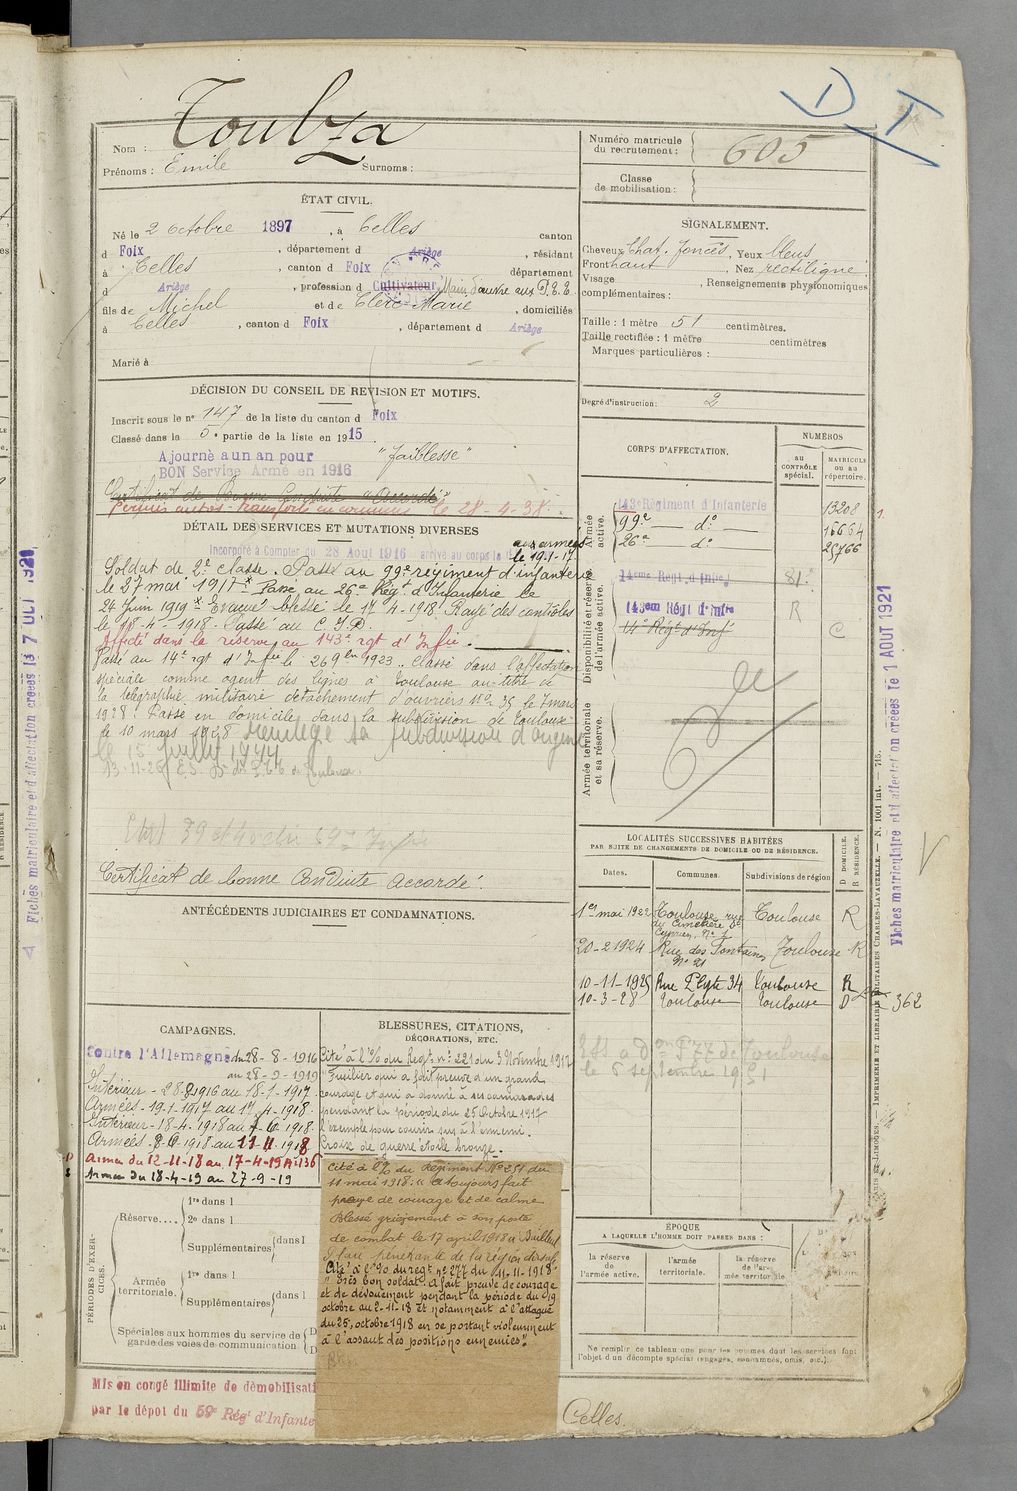 D T
Toulza
Nom :
Prénoms : Emile Surnoms :
Numéro matricule du recrutement : 605
Classe de mobilisation :
ÉTAT CIVIL.
Né le 2 octobre 1897, à Celles canton
d Foix, département d Ariège, résidant
à Celles, canton d Foix département
d Ariège, profession d Cultivateur, Main d'œuvre aux P.T.T.
fils de Michel et de Clerc Marie, domiciliés
à Celles, canton d Foix, département d Ariège
Marié à
SIGNALEMENT.
Cheveux Chat. foncés, Yeux bleus
Front haut, Nez rectiligne
Visage, Renseignements physionomiques
complémentaires :
Taille : 1 mètre 51 centimètres.
Taille rectifiée : 1 mètre centimètres
Marques particulières :
Degré d'instruction : 2
DÉCISION DU CONSEIL DE REVISION ET MOTIFS.
Inscrit sous le n° 147 de la liste du canton d Foix
Classé dans la 5e partie de la liste en 1915.
Ajourné a un an pour "faiblesse"
BON Service Armé en 1916
Certificat de Bonne Conduite "Accordé"
le 28-4-38.
DÉTAIL DES SERVICES ET MUTATIONS DIVERSES
Incorporé à Compter du 28 Aout 1916 arrivé au corps le
aux armées
le 19-1-17.
Soldat de 2e classe. Passé au 99e régiment d'infanterie
le 27 mai 1917. Passé au 26e Régt d'Infanterie le
24 Juin 1919. Evacué blessé le 17-4-1918. Rayé des contrôles
le 18-4-1918. Passé au C.I.D.
Affecté dans la réserve au 143e rgt d'Infie.
Passé au 14e rgt d'Infie le 26 9bre 1923. Classé dans l'affectation
spéciale comme agent des lignes à Toulouse au titre de
la télégraphie militaire détachement d'ouvriers No 35 le 7 mars
1928. Passé en domicile dans la subdivision de Toulouse
le 10 mars 1928 réintégré sa subdivision d'origine
le 15 juillet 1944
Certificat de bonne conduite accordé.
ANTÉCÉDENTS JUDICIAIRES ET CONDAMNATIONS.
CORPS D'AFFECTATION.
NUMÉROS
AU CONTRÔLE spécial.
MATRICULE ou au répertoire.
Armée active.
143e Régiment d'Infanterie 13208
99e — do 15664
26e do 25766
Disponibilité et réserve de l'armée active.
14eme Régt d'Infie
143em Régt d'Infie R
14e Régt d'Infie C
Armée territoriale et sa réserve.
LOCALITÉS SUCCESSIVES HABITÉES
PAR SUITE DE CHANGEMENTS DE DOMICILE OU DE RÉSIDENCE.
Dates. Communes. Subdivisions de région D DOMICILE. R RÉSIDENCE.
1er mai 1922 Toulouse rue du Cimetière St Cyprien, No 1 Toulouse R
20-2 1924 Rue des Fontaines No 21 Toulouse R
10-11-1925 Rue Peyte 34 Toulouse R
10-3-28 Toulouse Toulouse D 362
le 6 septembre 1951
CAMPAGNES.
Contre l'Allemagne du 28-8-1916
au 28-9-1919
Intérieur - 28-8 1916 au 18-1-1917.
Armées - 19-1-1917 au 17-4-1918.
Intérieur - 18-4-1918 au 7-6-1918.
Armées. 8-6-1918 au 11-11-1918
Armées du 12-11-18 au 17-4-19
Armées du 18-4-19 au 27-9-19
BLESSURES, CITATIONS, DÉCORATIONS, ETC.
Cité à l'O/ du Régt no 221 du 3 Novembre 1917
"Fusilier qui a fait preuve d'un grand
courage et qui a donné à ses camarades
pendant la période du 25 Octobre 1917
l'exemple pour courir sus à l'ennemi.
Croix de guerre étoile bronze.
Cité à l'O/ du Régiment No 251 du
11 mai 1918. a toujours fait
preuve de courage et de calme
Blessé grièvement à son poste
de combat le 17 avril 1918 à Bailleul
Plaie pénétrante de la région dorsale
Cité à l'O/ du regt no 277 du 11-11-1918
"Très bon soldat. A fait preuve de courage
et de dévouement pendant la période du 19
octobre au 2-11-18 et notamment à l'attaque
du 25, octobre 1918 en se portant violemment
à l'assaut des positions ennemies".
PÉRIODES D'EXERCICES.
Réserve....
1re dans l
2e dans l
Supplémentaires dans l
Armée territoriale.
1re dans l
Supplémentaires dans l
Spéciales aux hommes du service de garde des voies de communication
D
D
ÉPOQUE
A LAQUELLE L'HOMME DOIT PASSER DANS :
la réserve de l'armée active.
l'armée territoriale.
la réserve de l'armée territoriale
Ne remplir ce tableau que pour les hommes dont les services font l'objet d'un décompte spécial (engagés, condamnés, omis, etc.).
Mis en congé illimité de démobilisati
par le dépôt du 59e Régt d'Infante
Celles.
Fiches matriculaire et d'affectation créées le 1 AOUT 1921
PARIS ET LIMOGES. — IMPRIMERIE ET LIBRAIRIE MILITAIRES CHARLES-LAVAUZELLE. — N. 1001 int. — 715.
Fiches matriculaire et d'affectation créées le